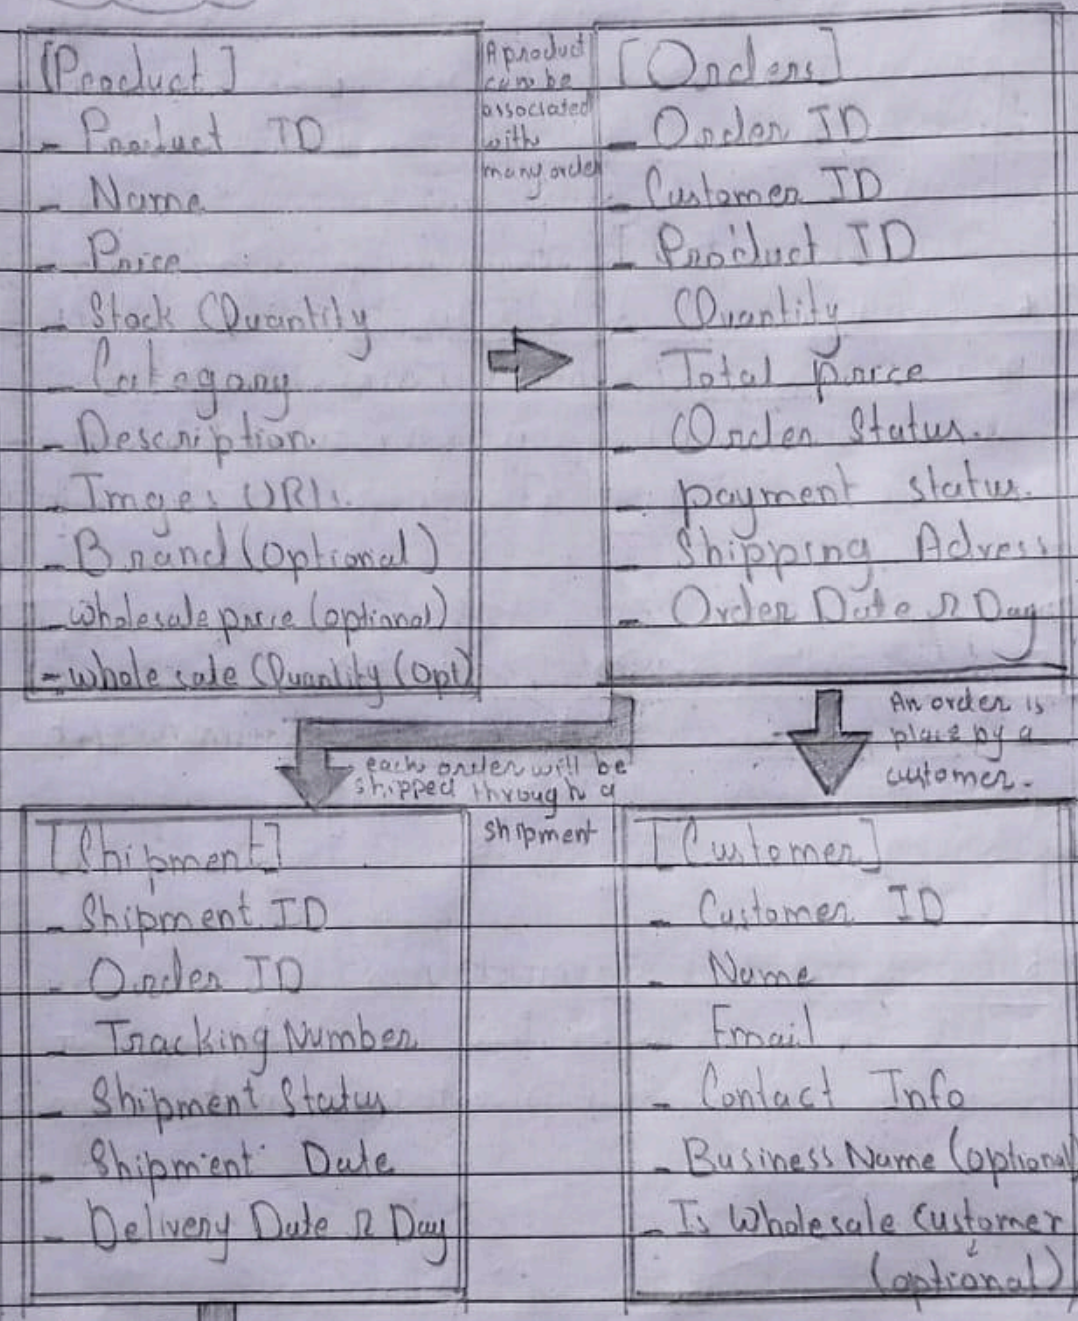 [Product]
- Product ID
- Name
- Price
- Stock Quantity
- Category
- Description
- Imges URLs.
- Brand (Optional)
- wholesale price (optional)
- whole sale Quantity (Opt)
A product
can be
associated
with
many order
[Orders]
- Order ID
- Customer ID
- Product ID
- Quantity
- Total price
- Order Status.
- payment status.
- Shipping Adress
- Order Date & Day
each order will be
shipped through a
shipment
An order is
place by a
customer.
[Shipment]
- Shipment ID
- Order ID
- Tracking Number
- Shipment Status
- Shipment Date
- Delivery Date & Day
[Customer]
- Customer ID
- Name
- Email
- Contact Info
- Business Name (optional)
- Is Wholesale Customer
(optional)